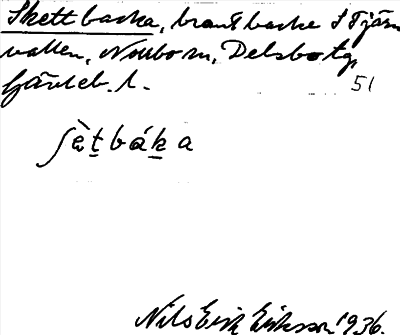 Skettbacka, brant backe i Tjärn
vallen, Norrbo sn, Delsbo tg,
Gävleb. l.
51
ʃètbáka
Nils Erik Eriksson 1936.